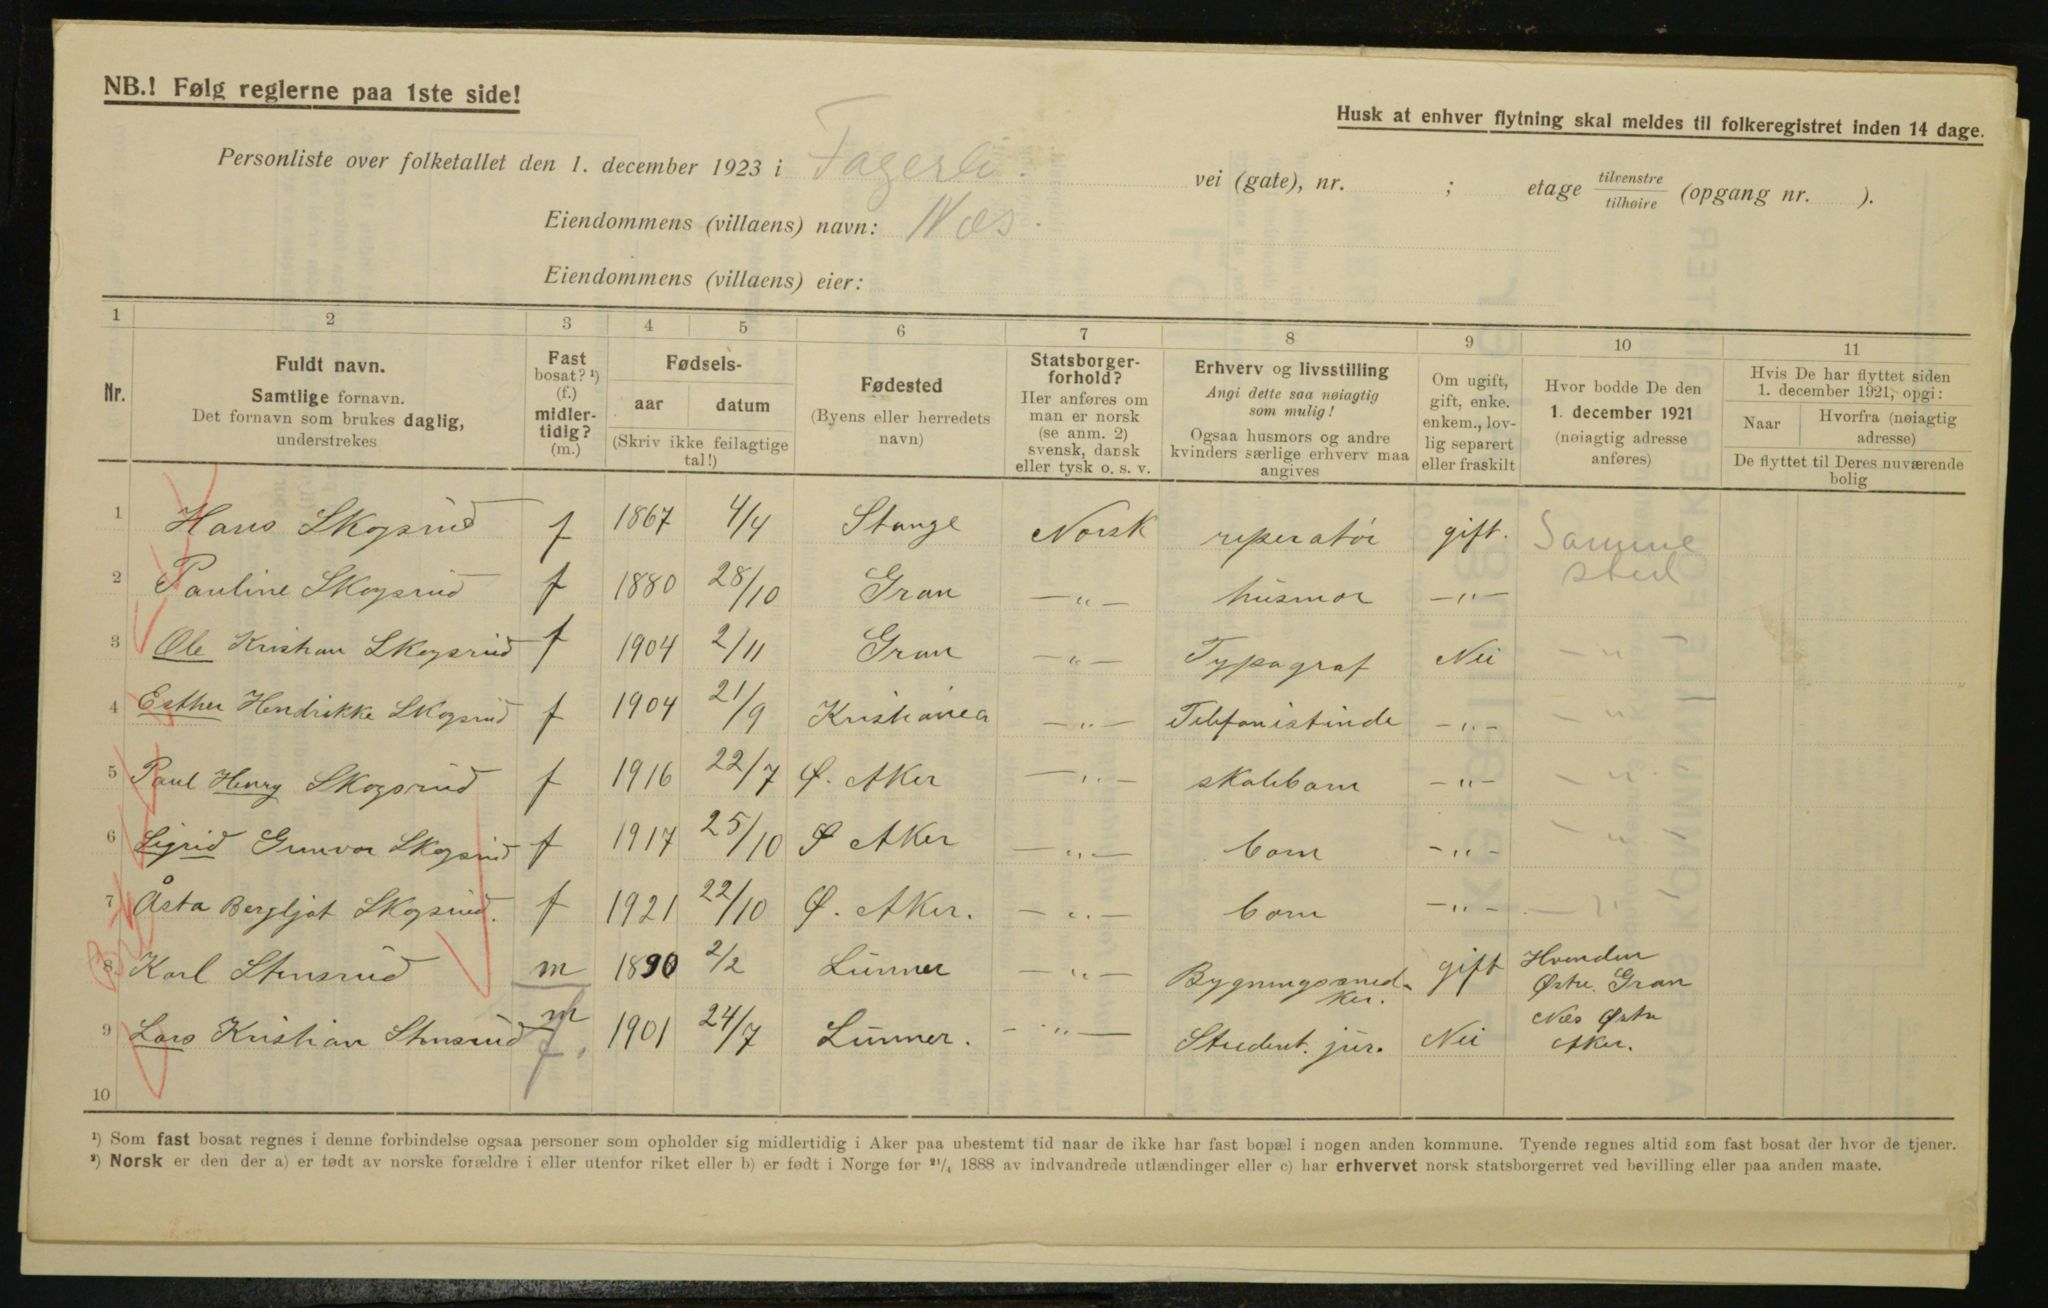 NB.! Følg reglerne paa 1ste side!
Husk at enhver flytning skal meldes til folkeregistret inden 14 dage.
Personliste over folketallet den 1. december 1923 i Fagerli. vei (gate), nr. ; etage tilvenstre tilhøire (opgang nr. ).
Eiendommens (villaens) navn: Næs.
Eiendommens (villaens) eier:
1 2 3 4 5 6 7 8 9 10 11
Nr.
Fuldt navn.
Samtlige fornavn.
Det fornavn som brukes daglig,
understrekes
Fast
bosat? ¹)
(f.)
midler-
tidig?
(m.)
Fødsels-
aar datum
(Skriv ikke feilagtige
tal!)
Fødested
(Byens eller herredets
navn)
Statsborger-
forhold?
Her anføres om
man er norsk
(se anm. 2)
svensk, dansk
eller tysk o. s. v.
Erhverv og livsstilling
Angi dette saa nøiagtig
som mulig!
Ogsaa husmors og andre
kvinders særlige erhverv maa
angives
Om ugift,
gift, enke.
enkem., lov-
lig separert
eller fraskilt
Hvor bodde De den
1. december 1921
(nøiagtig adresse
anføres)
Hvis De har flyttet siden
1. december 1921, opgi:
Naar Hvorfra (nøiagtig
adresse)
De flyttet til Deres nuværende
bolig
1 Hans Skogsrud f 1867 4/4 Stange Norsk reperatør gift. Samme
sted
2 Pauline Skogsrud f 1880 28/10 Gran —"— husmor —"—
3 Ole Kristian Skogsrud f 1904 2/11 Gran —"— Typograf Nei —"
4 Esther Hendrikke Skogsrud f 1904 21/9 Kristiania —"— Telefonistinde —"— —"
5 Paul Henry Skogsrud f 1916 22/7 Ø. Aker —"— skolebarn —"— —"
6 Sigrid Gunvor Skogsrud f 1917 25/10 Ø Aker —"— barn —"— —"
7 Åsta Bergljot Skogsrud. f 1921 22/10 Ø. Aker. —"— barn —"— —"
8 Karl Stensrud m 1890 2/2 Lunner —"— Bygningssned-
ker. gift Hvenden
Østre. Gran
9 Lars Kristian Stensrud m f. 1901 24/7 Lunner. —"— Student. jur. Nei Næs Østre
Aker.
10
¹) Som fast bosat regnes i denne forbindelse ogsaa personer som opholder sig midlertidig i Aker paa ubestemt tid naar de ikke har fast bopæl i nogen anden kommune. Tyende regnes altid som fast bosat der hvor de tjener.
²) Norsk er den der a) er født av norske forældre i eller utenfor riket eller b) er født i Norge før 21/4 1888 av indvandrede utlændinger eller c) har erhvervet norsk statsborgerret ved bevilling eller paa anden maate.